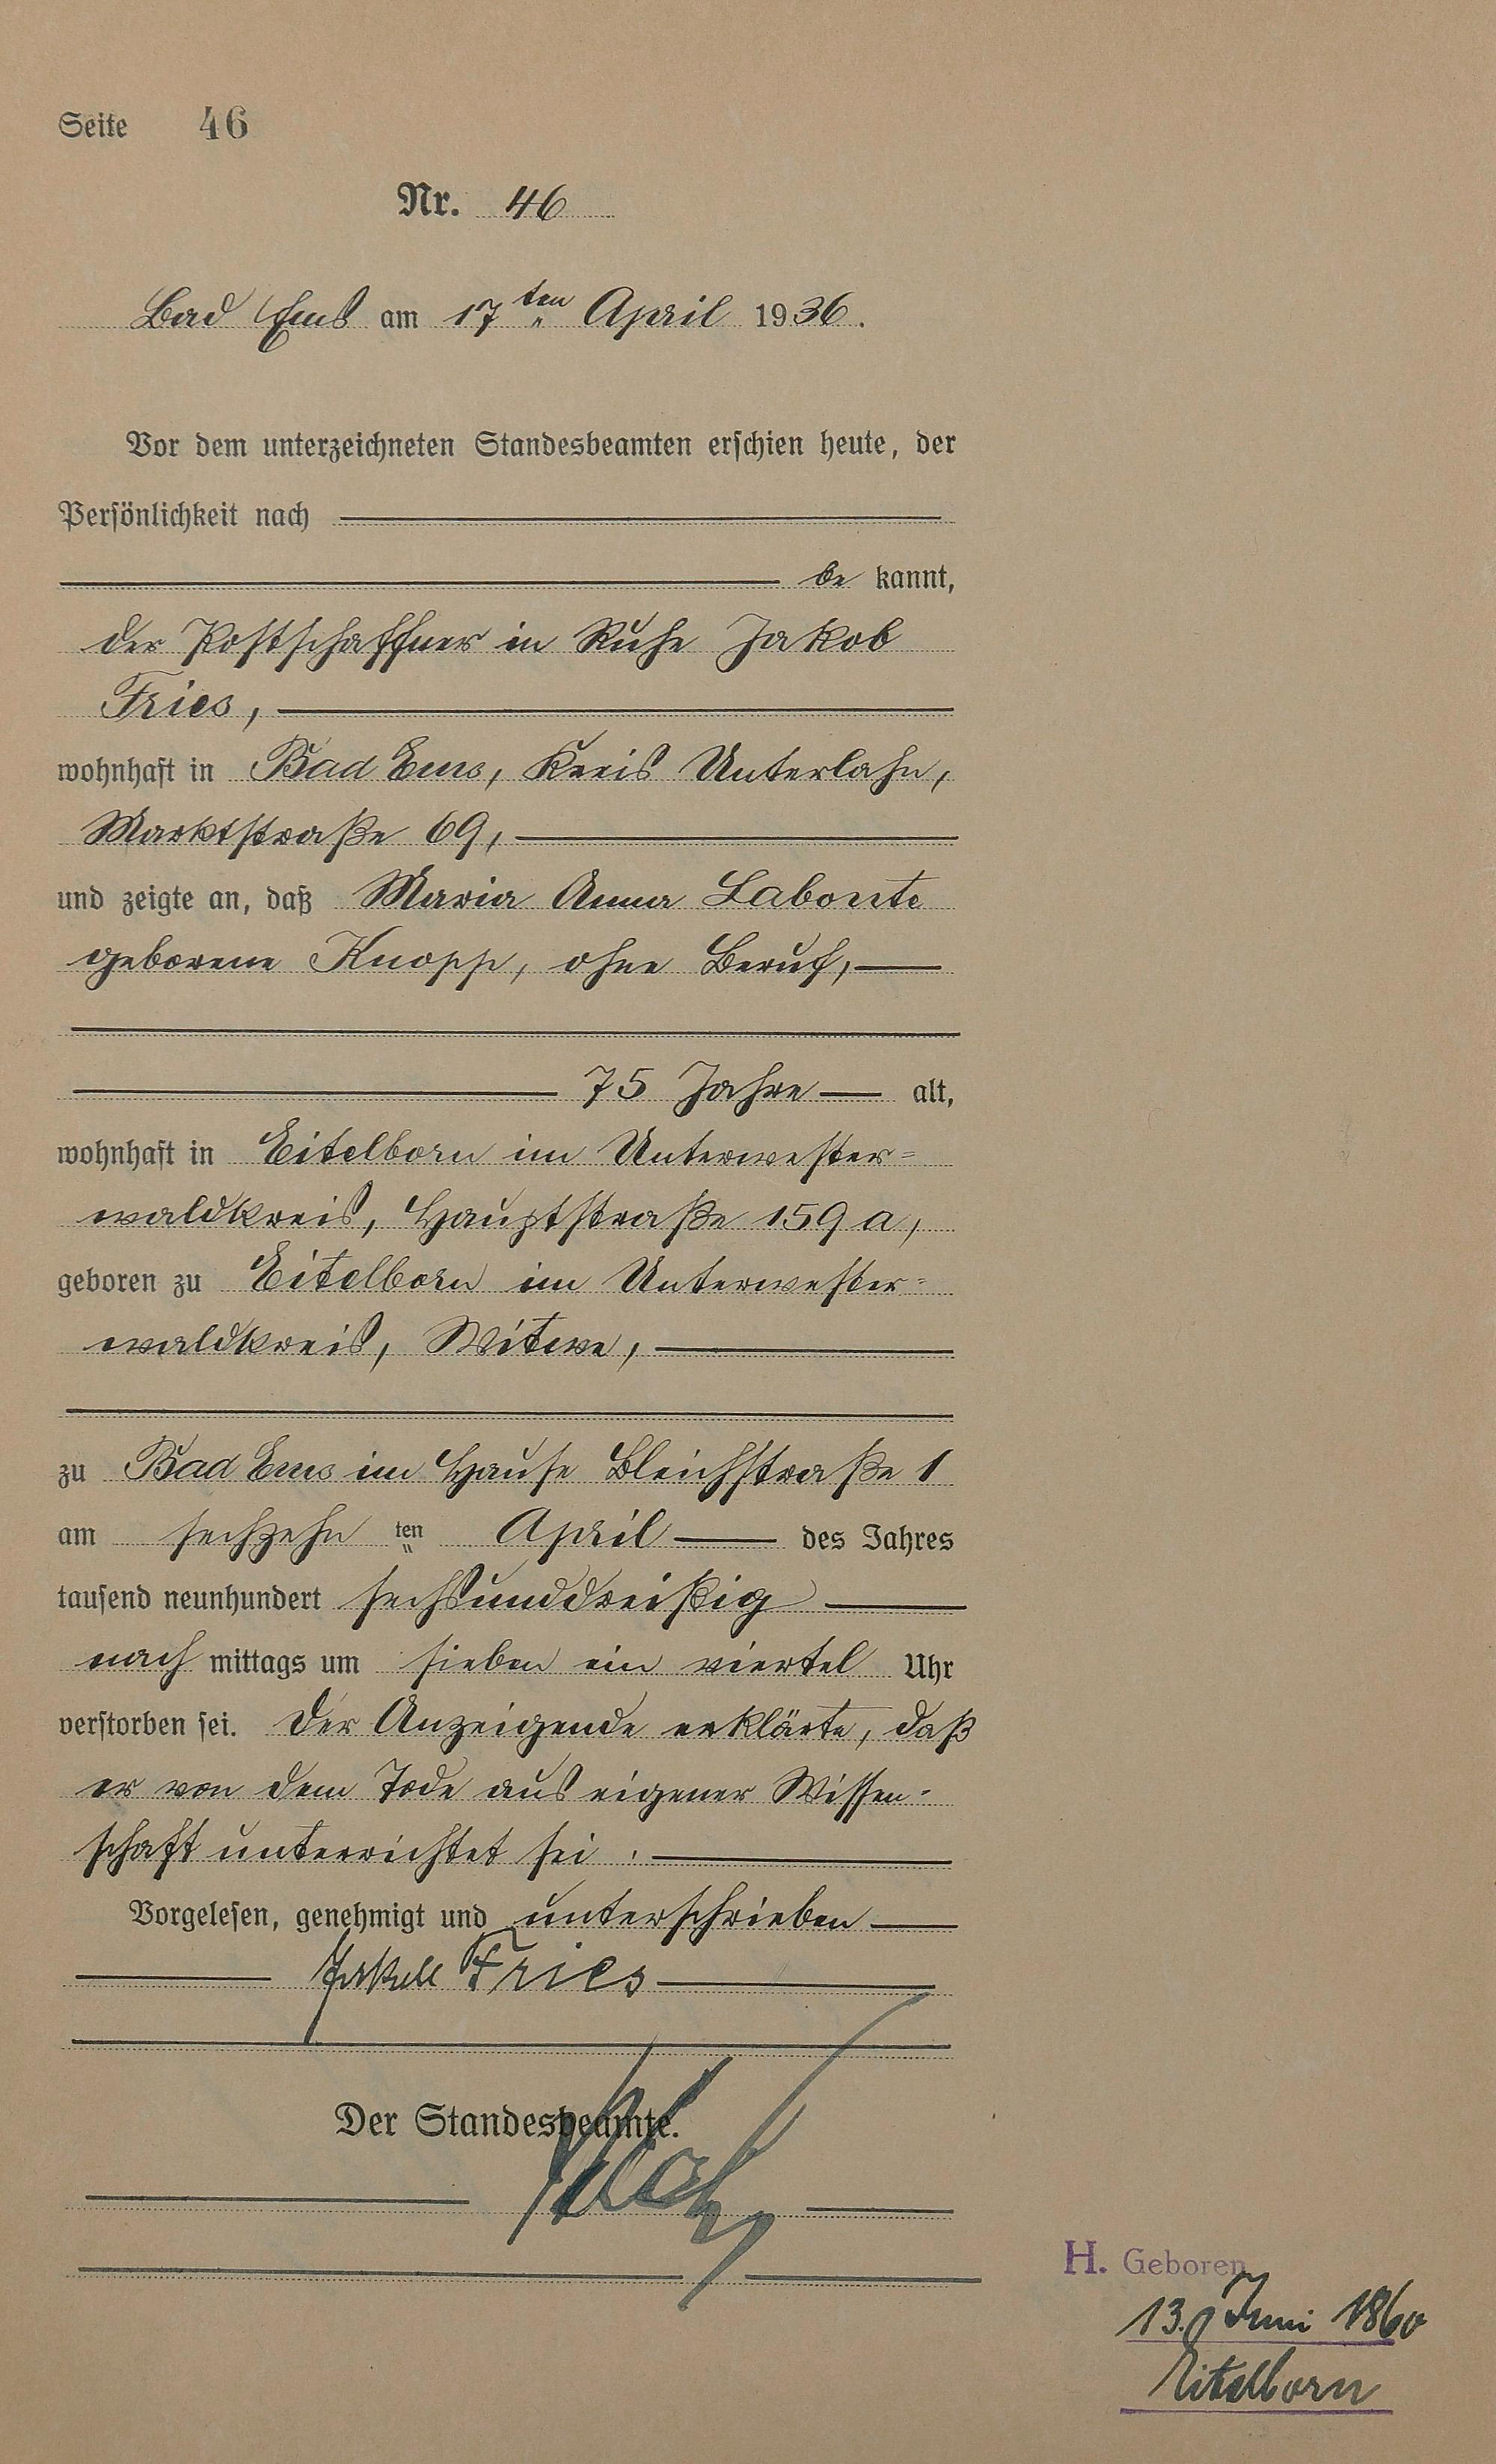 Seite 46
Nr. 46
Bad Ems am 17ten April 1936.
Vor dem unterzeichneten Standesbeamten erschien heute, der
Persönlichkeit nach
be kannt,
der Postschaffner in Ruhe Jakob
Fries,
wohnhaft in Bad Ems, Kreis Unterlahn,
Marktstraße 69,
und zeigte an, daß Maria Anna Labonte
geborene Knopp, ohne Beruf,
75 Jahre alt,
wohnhaft in Eitelborn im Unterwester=
waldkreis, Hauptstraße 159 a,
geboren zu Eitelborn im Unterwester=
waldkreis, Witwe,
zu Bad Ems im Hause Bleichstraße 1
am sechzehn ten April des Jahres
tausend neunhundert sechsunddreißig
nach mittags um sieben ein viertel Uhr
verstorben sei. Der Anzeigende erklärte, daß
er von dem Tode aus eigener Wissen=
schaft unterrichtet sei.
Vorgelesen, genehmigt und unterschrieben
Jakob Fries
Der Standesbeamte.
H. Geboren
13. Juni 1860
Eitelborn